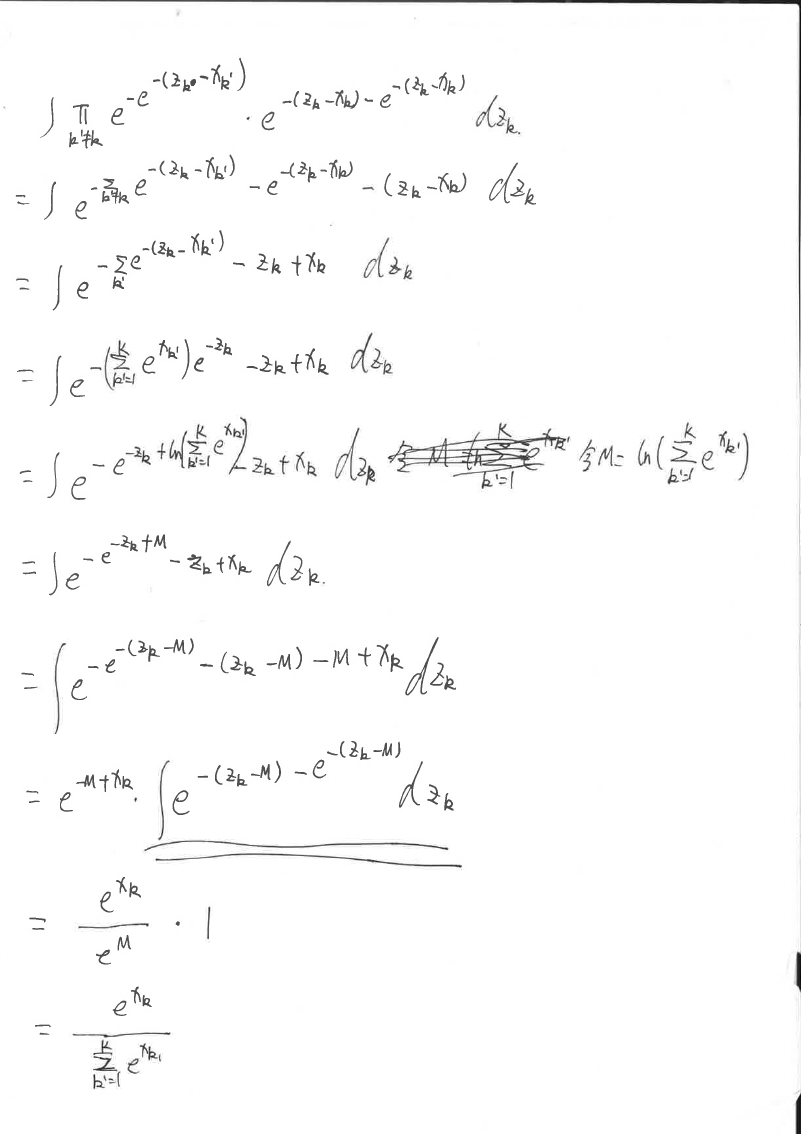 ∫ ∏_{k'≠k} e^{-e^{-(z_k-x_{k'})}} · e^{-(z_k-x_k)-e^{-(z_k-x_k)}} dz_k.
= ∫ e^{-∑_{k'≠k} e^{-(z_k-x_{k'})} - e^{-(z_k-x_k)} - (z_k-x_k)} dz_k
= ∫ e^{-∑_{k'} e^{-(z_k-x_{k'})} - z_k + x_k} dz_k
= ∫ e^{-(∑_{k'=1}^{K} e^{x_{k'}}) e^{-z_k} - z_k + x_k} dz_k
= ∫ e^{-e^{-z_k + ln(∑_{k'=1}^{K} e^{x_{k'}})} - z_k + x_k} dz_k 令M= ln(∑_{k'=1}^{K} e^{x_{k'}})
= ∫ e^{-e^{-z_k+M} - z_k + x_k} dz_k.
= ∫ e^{-e^{-(z_k-M)} - (z_k-M) - M + x_k} dz_k
= e^{-M+x_k} · ∫ e^{-(z_k-M) - e^{-(z_k-M)}} dz_k
= \frac{e^{x_k}}{e^M} · 1
= \frac{e^{x_k}}{∑_{k'=1}^{K} e^{x_{k'}}}